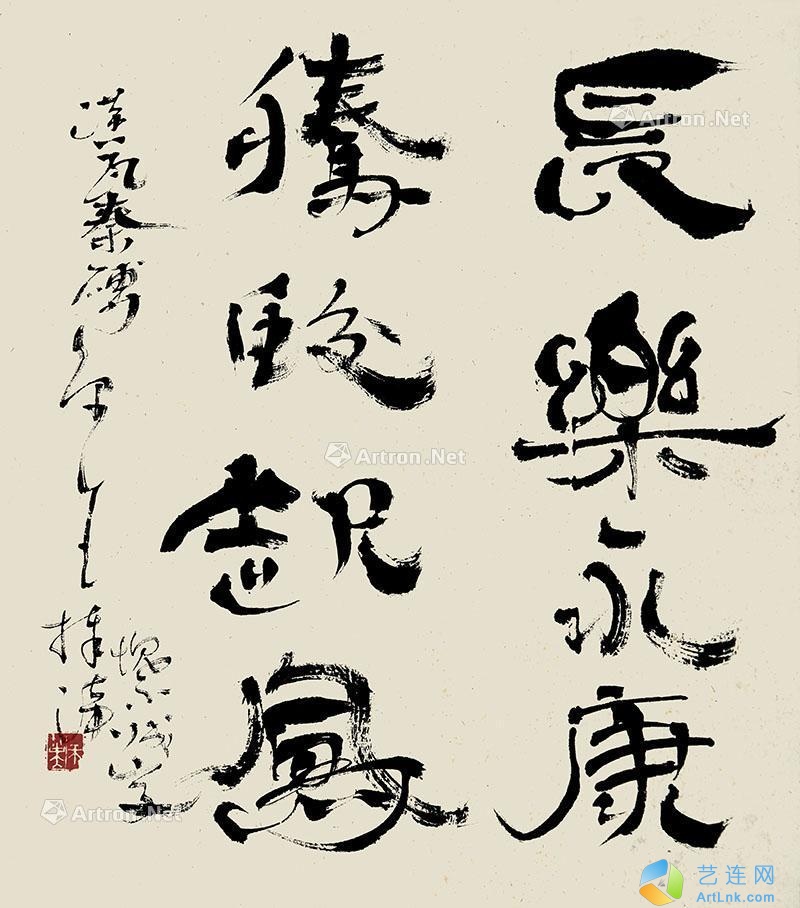 長樂永康
騰蛟起鳳
漢瓦秦磚
Artron.Net
Artron.Net
Artron.Net
Artron.Net
艺连网
ArtLnk.com